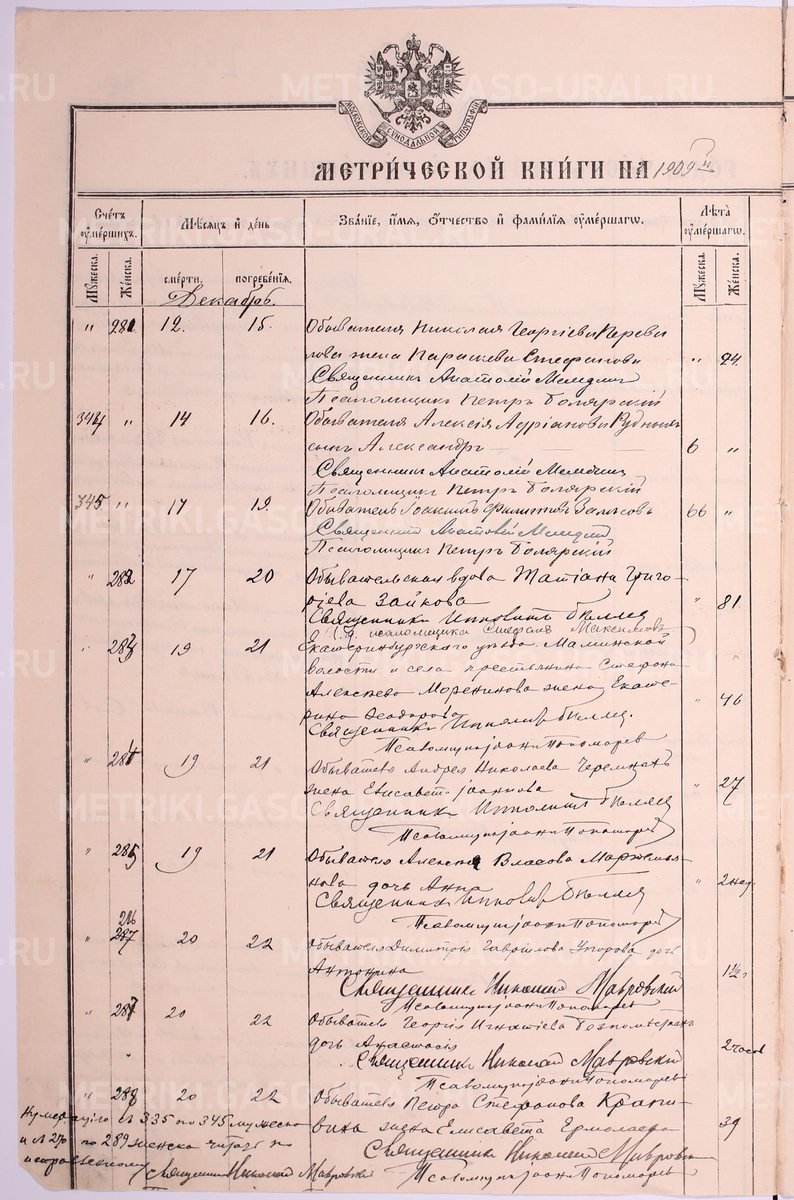 МОСКОВСКОЙ СѴНОДАЛЬНОЙ ТИПОГРАФІИ
МЕТРИ́ЧЕСКОЙ КНИ́ГИ НА 1909 й
Счетъ ѹмершихъ. Мѣсяцъ и день Званіе, имя, отчество и фамилія ѹмершагѡ. Лѣта ѹмершагѡ.
Мужеска. Женска. смерти. погребенія. Мужеска. Женска.
Декабрь.
" 281 12. 15. Обывателя Николая Георгіева Переви
лова жена Параскева Стефанова " 24.
Священникъ Анатолій
Псаломщикъ Петръ Болярскій
344 " 14 16. Обывателя Алексія Адріанова
сынъ Александръ 6 "
Священникъ Анатолій
Псаломщикъ Петръ Болярскій
345 " 17 19. Обыватель Іоакимъ Филиповъ 66 "
Священникъ Анатолій
Псаломщикъ Петръ Болярскій
" 282 17 20 Обывательская вдова Татіана Григо-
ріева Зайкова " 81
Священникъ Ипполитъ
псаломщика Стефанъ Максимовъ
" 283 19 21 Екатеринбургскаго уѣзда Маминской
волости и села крестьянина Стефана
Алексѣева жена Екате- " 46
рина Феодорова
Священникъ Ипполитъ
Псаломщикъ Іоаннъ Пономаревъ
" 284 19 21 Обывателя Андрея Николаева
жена Елисавета Іоаннова " 27
Священникъ Ипполитъ
Псаломщикъ Іоаннъ Пономаревъ
" 285 19 21 Обывателя Алексѣя Власова Мартемья-
нова дочь Анна " 2 нед.
Священникъ Ипполитъ
Псаломщикъ Іоаннъ Пономаревъ
286
" 287 20 22 Обывателя Димитрія Гаврилова Упорова дочь
Антонина 1½ г
Священникъ Николай Мавровскій
Псаломщикъ Іоаннъ Пономаревъ
" 287 20 22 Обывателя Георгія Игнатіева
дочь Анастасія 2 часов
Священникъ Николай Мавровскій
Псаломщикъ Іоаннъ Пономаревъ
" 288 20 22 Обывателя Петра Стефанова Крапи-
вина жена Елисавета Ермолаева 39
Священникъ Николай Мавровскій
Псаломщикъ Іоаннъ Пономаревъ
Нумерацію с 335 по 345 мужеска
и с 270 по 289 женска читать по
исправленному
Священникъ Николай Мавровскій
METRIKI.GASO-URAL.RU